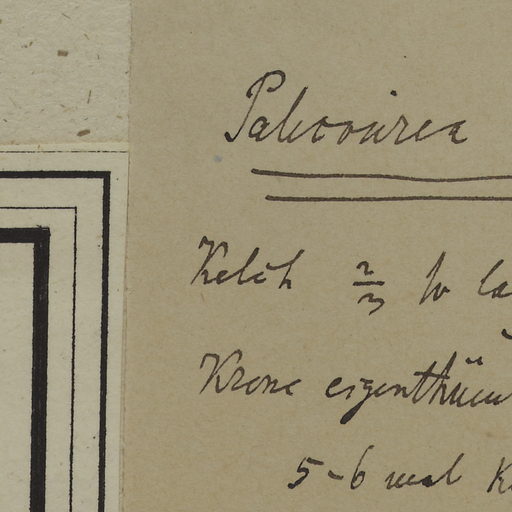 Palicourea
Kelch 2/3 so la
Krone eigenthüm
5-6 mal K